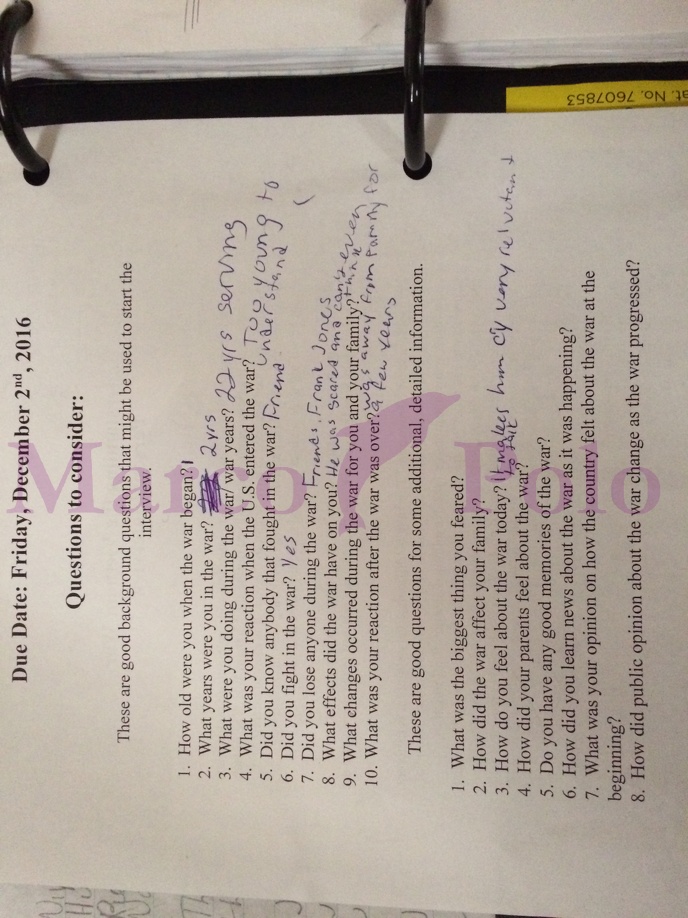 at. No. 7607853
Due Date: Friday, December 2nd, 2016
Questions to consider:
These are good background questions that might be used to start the
interview.
1. How old were you when the war began? 1
2. What years were you in the war? 2 yrs
3. What were you doing during the war/ war years? 22 yrs serving
4. What was your reaction when the U.S. entered the war? Too young to
understand
5. Did you know anybody that fought in the war? Friend.
6. Did you fight in the war? Yes
7. Did you lose anyone during the war? Friends. Frank Jones
8. What effects did the war have on you? He was scared and can't even
think
9. What changes occurred during the war for you and your family?
10. What was your reaction after the war was over? was away from family for
a few years
These are good questions for some additional, detailed information.
1. What was the biggest thing you feared?
2. How did the war affect your family?
3. How do you feel about the war today? It makes him cry very reluctant
to talk
4. How did your parents feel about the war?
5. Do you have any good memories of the war?
6. How did you learn news about the war as it was happening?
7. What was your opinion on how the country felt about the war at the
beginning?
8. How did public opinion about the war change as the war progressed?
Marco Polo